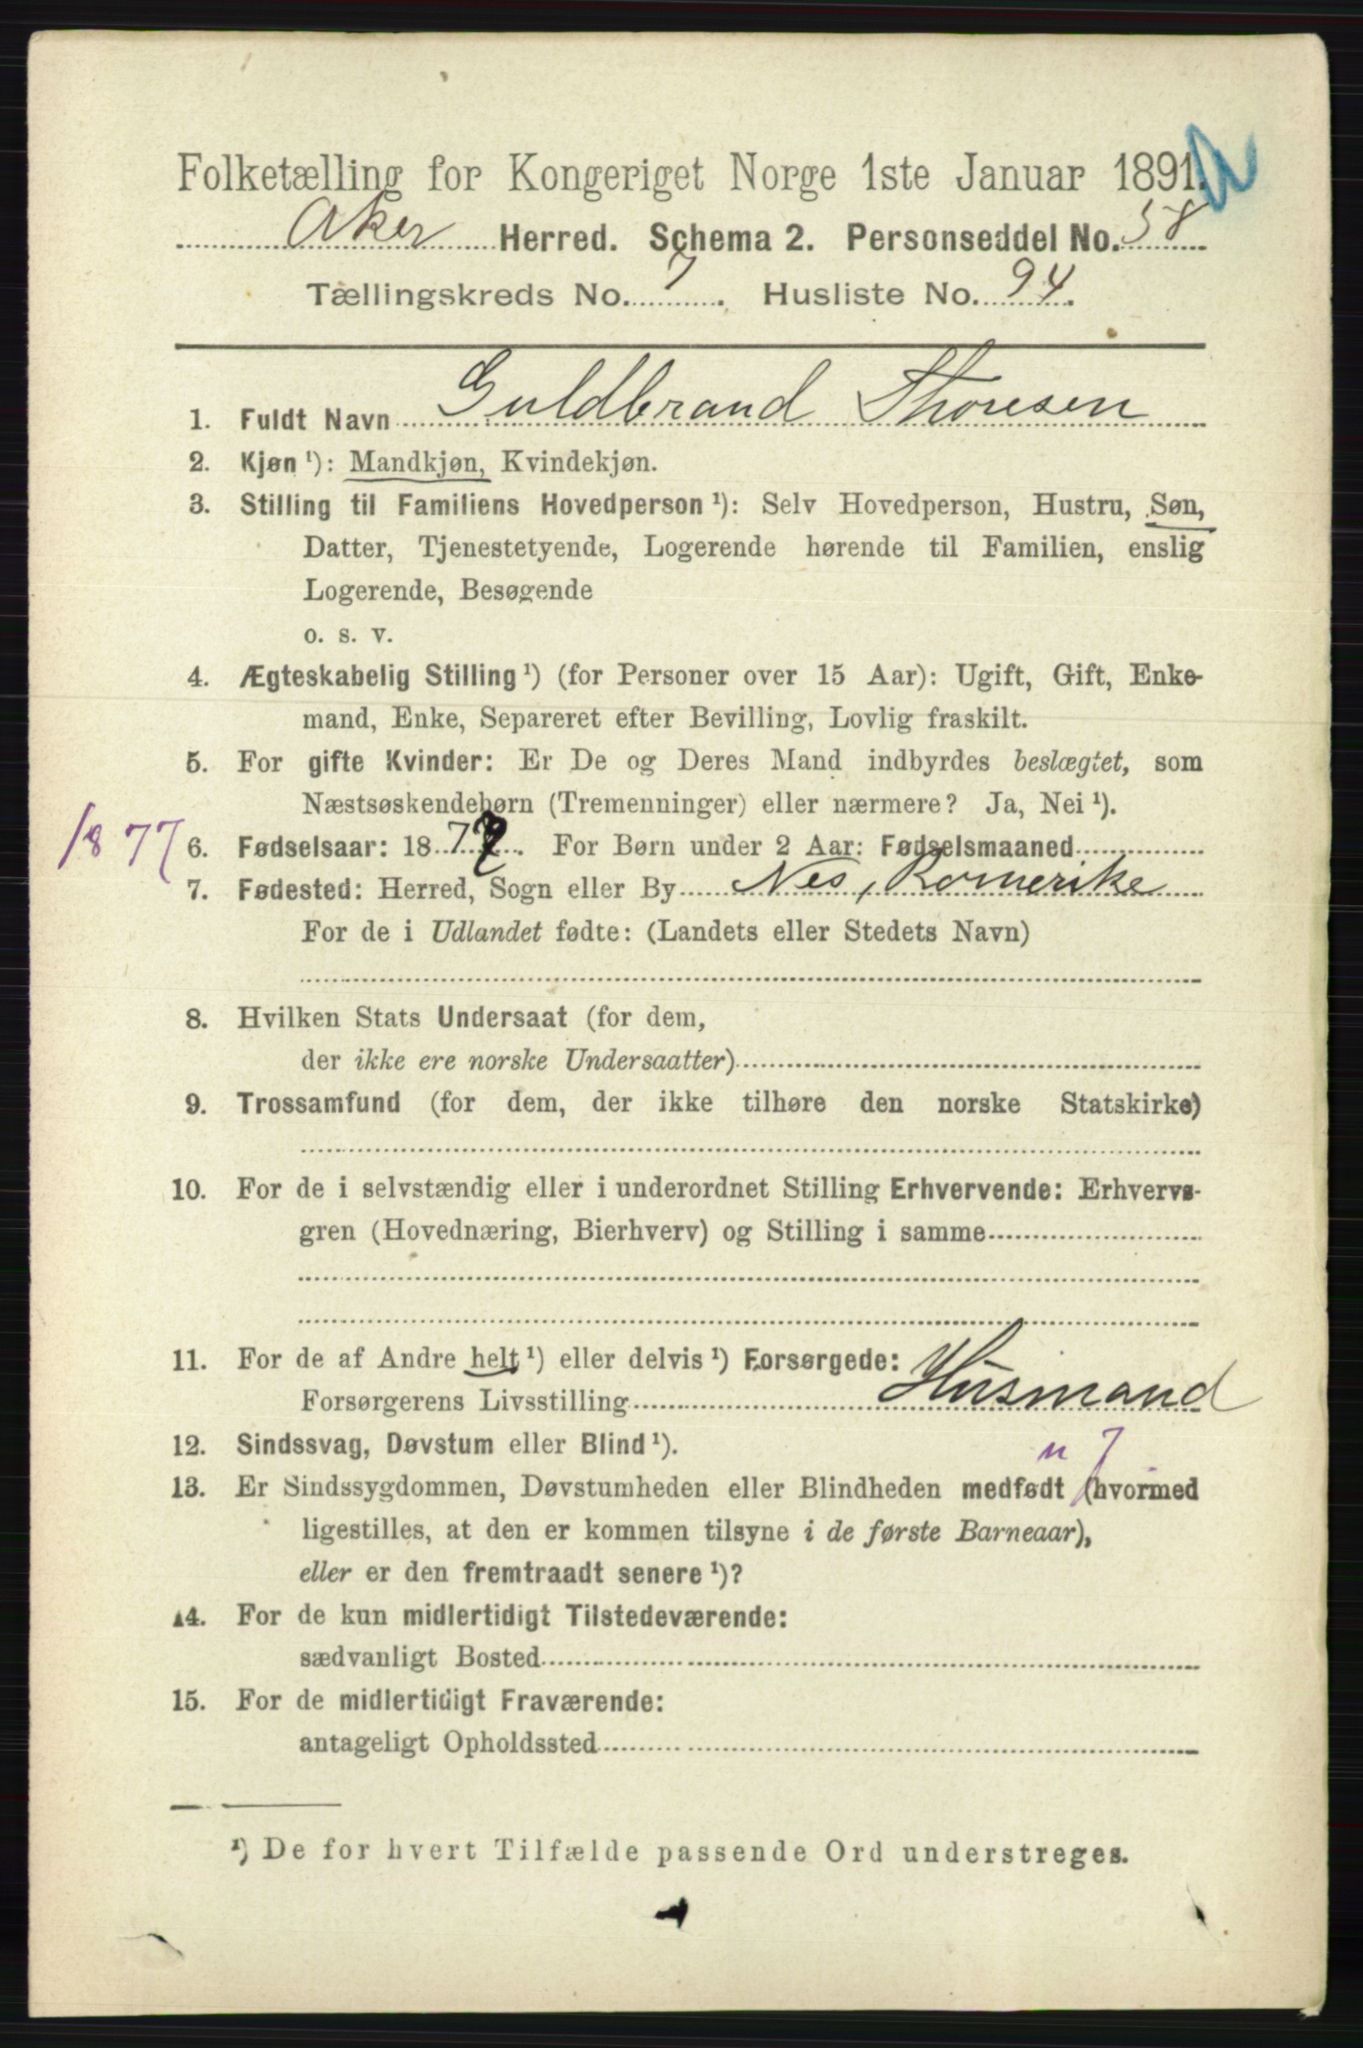 Folketælling for Kongeriget Norge 1ste Januar 1891.
Aker Herred. Schema 2. Personseddel No. 58
Tællingskreds No. 7. Husliste No. 94.
1. Fuldt Navn Guldbrand Thoresen
2. Kjøn ¹): Mandkjøn, Kvindekjøn.
3. Stilling til Familiens Hovedperson ¹): Selv Hovedperson, Hustru, Søn,
Datter, Tjenestetyende, Logerende hørende til Familien, enslig
Logerende, Besøgende
o. s. v.
4. Ægteskabelig Stilling ¹) (for Personer over 15 Aar): Ugift, Gift, Enke-
mand, Enke, Separeret efter Bevilling, Lovlig fraskilt.
5. For gifte Kvinder: Er De og Deres Mand indbyrdes beslægtet, som
Næstsøskendebørn (Tremenninger) eller nærmere? Ja, Nei ¹).
1877 6. Fødselsaar: 1877. For Børn under 2 Aar: Fødselsmaaned
7. Fødested: Herred, Sogn eller By Nes, Romerike
For de i Udlandet fødte: (Landets eller Stedets Navn)
8. Hvilken Stats Undersaat (for dem,
der ikke ere norske Undersaatter)
9. Trossamfund (for dem, der ikke tilhøre den norske Statskirke)
10. For de i selvstændig eller i underordnet Stilling Erhvervende: Erhvervs-
gren (Hovednæring, Bierhverv) og Stilling i samme
11. For de af Andre helt ¹) eller delvis ¹) Forsørgede:
Forsørgerens Livsstilling Husmand
12. Sindssvag, Døvstum eller Blind ¹).
n 7
13. Er Sindssygdommen, Døvstumheden eller Blindheden medfødt (hvormed
ligestilles, at den er kommen tilsyne i de første Barneaar),
eller er den fremtraadt senere ¹)?
14. For de kun midlertidigt Tilstedeværende:
sædvanligt Bosted
15. For de midlertidigt Fraværende:
antageligt Opholdssted
¹) De for hvert Tilfælde passende Ord understreges.